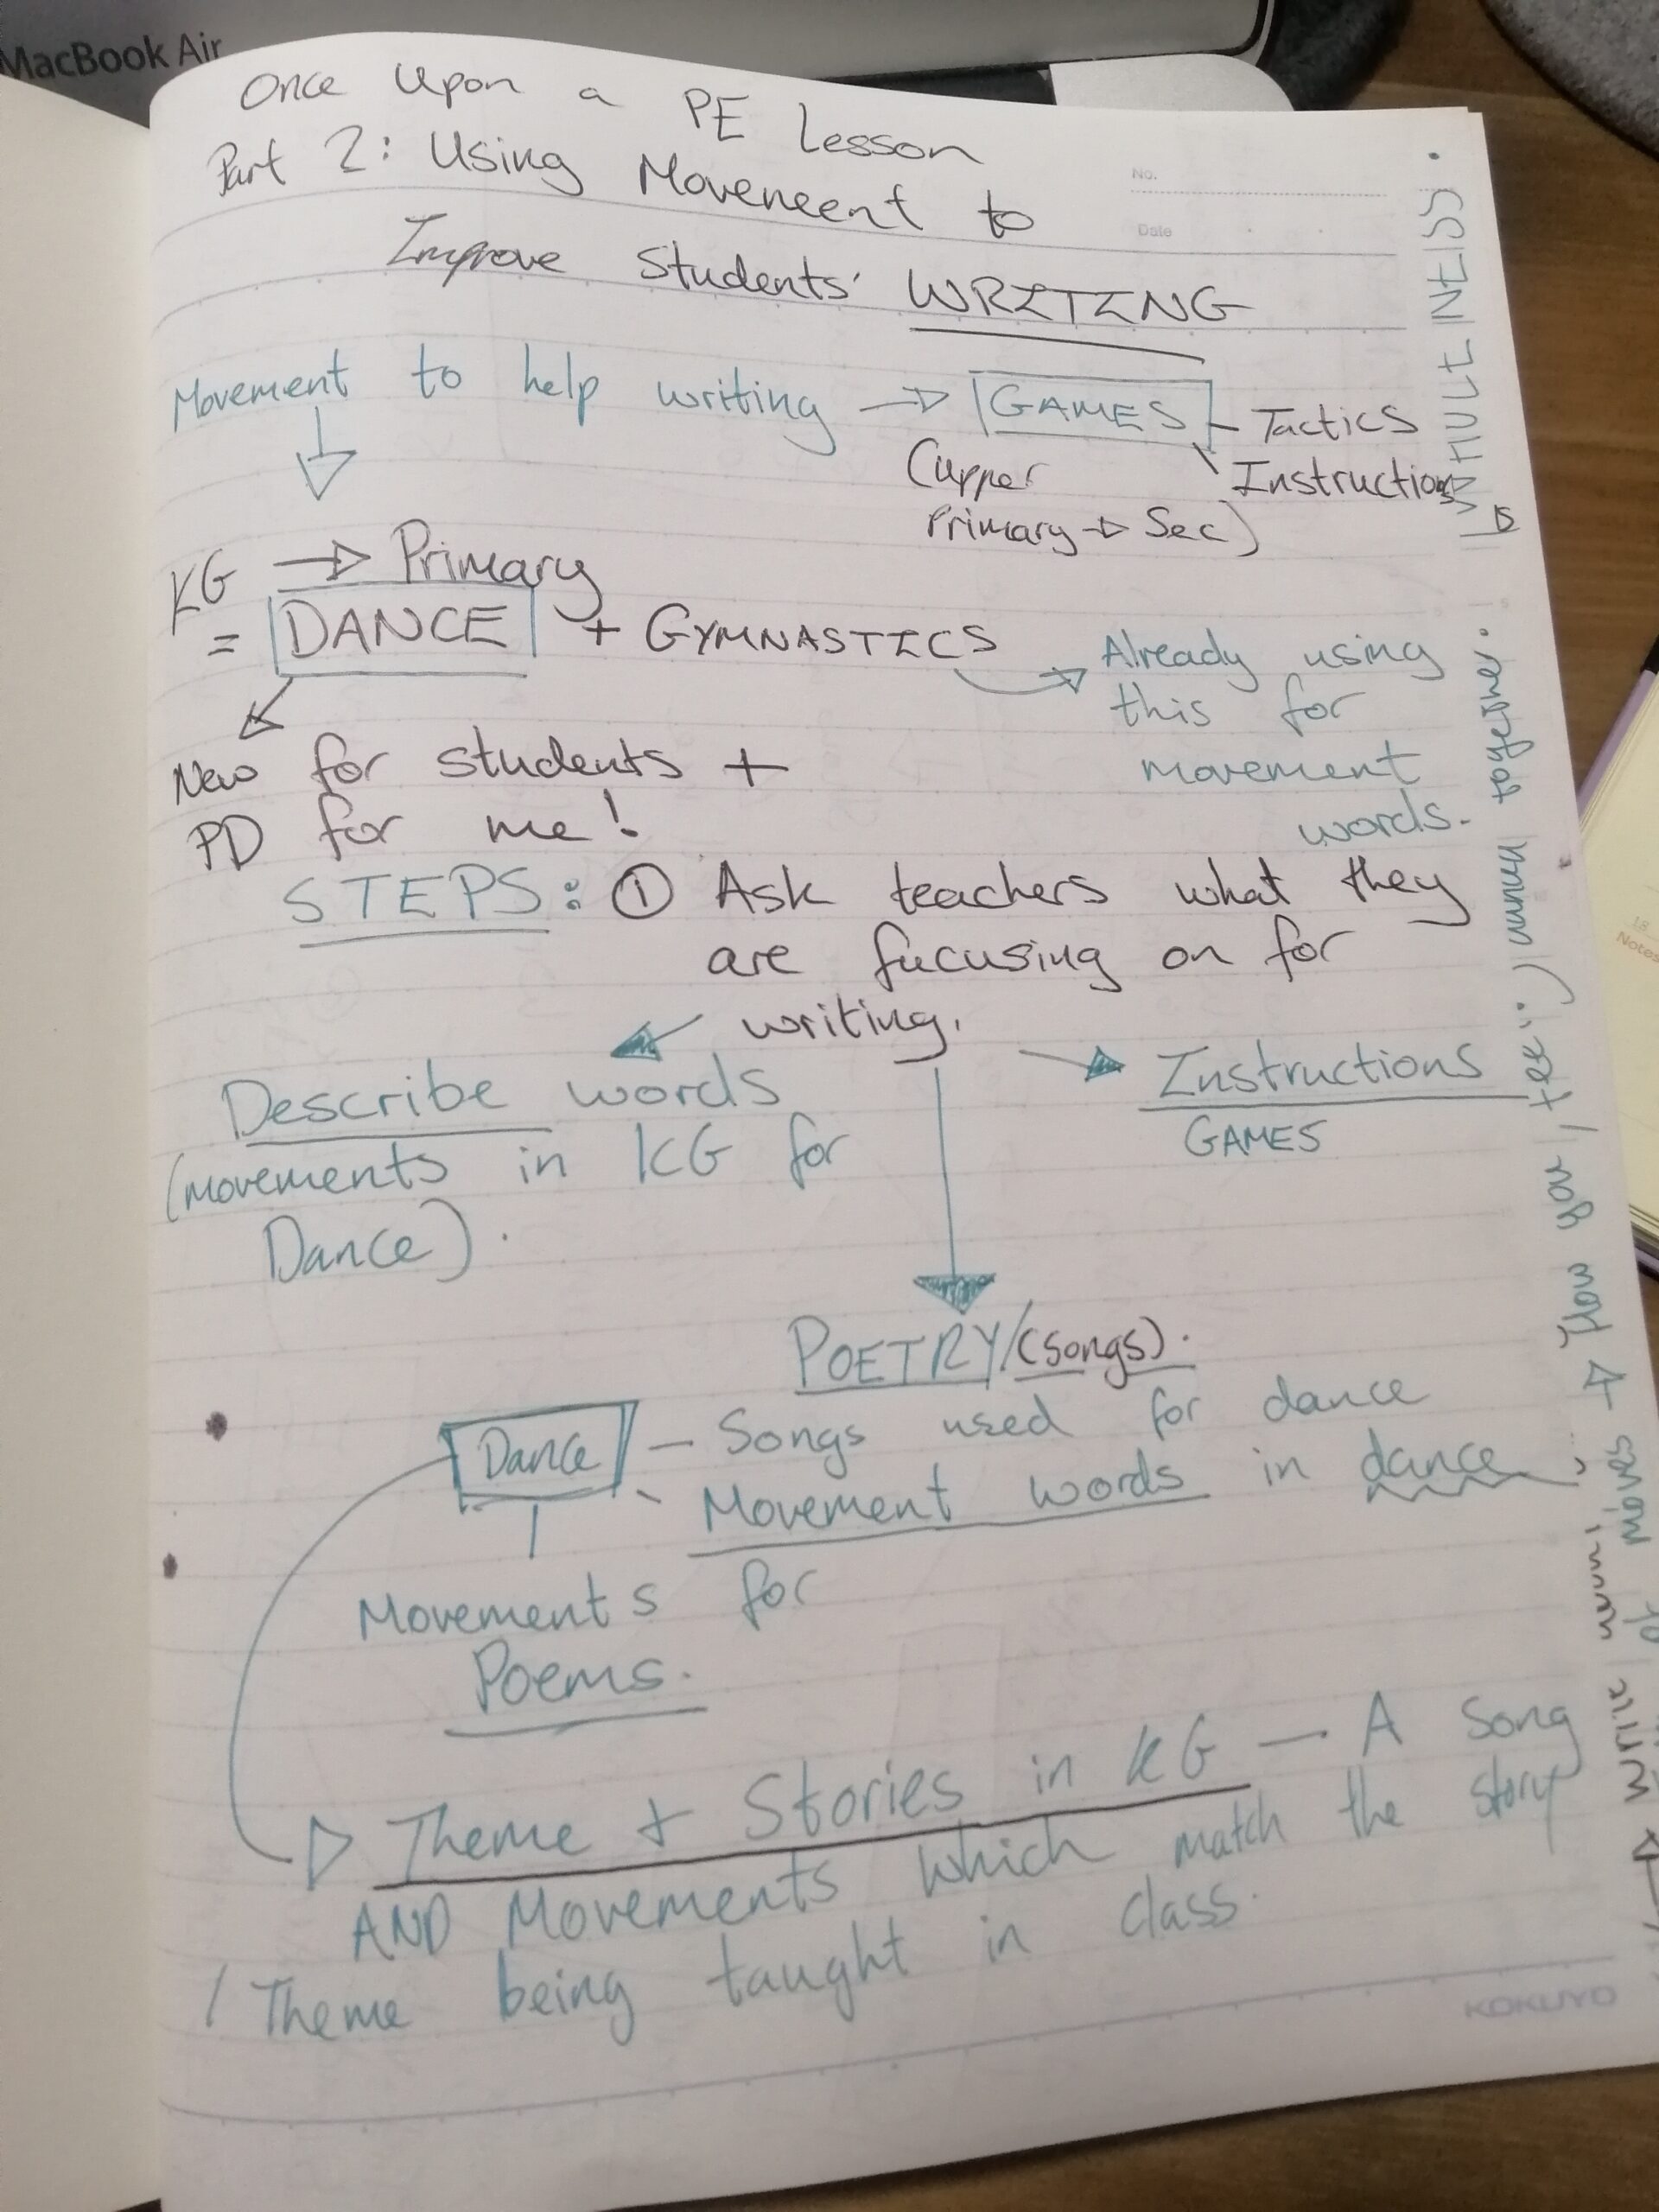 MacBook Air
Once Upon a PE Lesson
Part 2: Using Movement to
Improve Students' WRITING
No.
Date
Movement to help writing → GAMES - Tactics
Instructions
(Upper
Primary → Sec)
KG → Primary
= DANCE + GYMNASTICS
Already using
this for
movement
words.
New for students +
PD for me!
STEPS: ① Ask teachers what they
are focusing on for
writing.
Describe words
(movements in KG for
Dance).
Instructions
GAMES
POETRY/(songs).
Dance - Songs used for dance
Movement words in dance
Movements for
Poems.
Theme + Stories in KG — A Song
AND Movements which match the story
/ Theme being taught in class.
KOKUYO
together.
→ How you feel
of moves
Write
Notes